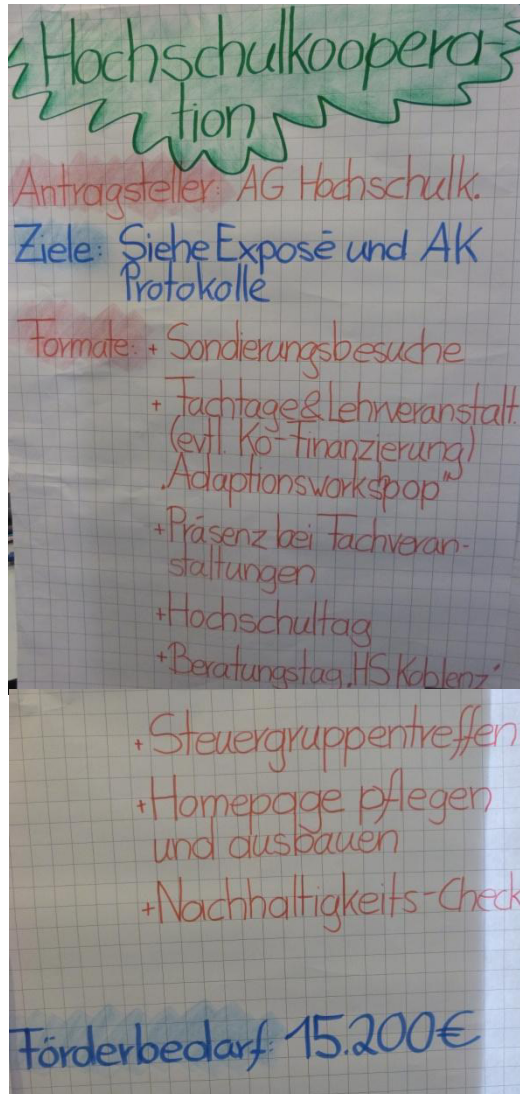 Hochschulkoopera-
tion
Antragsteller: AG Hochschulk.
Ziele: Siehe Exposé und AK
Protokolle
Formate: + Sondierungsbesuche
+ Fachtage & Lehrveranstalt.
(evtl. Ko-Finanzierung)
„Adaptionsworkspop"
+ Präsenz bei Fachveran-
staltungen
+ Hochschultag
+ Beratungstag „HS Koblenz"
+ Steuergruppentreffen
+ Homepage pflegen
und ausbauen
+ Nachhaltigkeits-Check
Förderbedarf: 15.200€